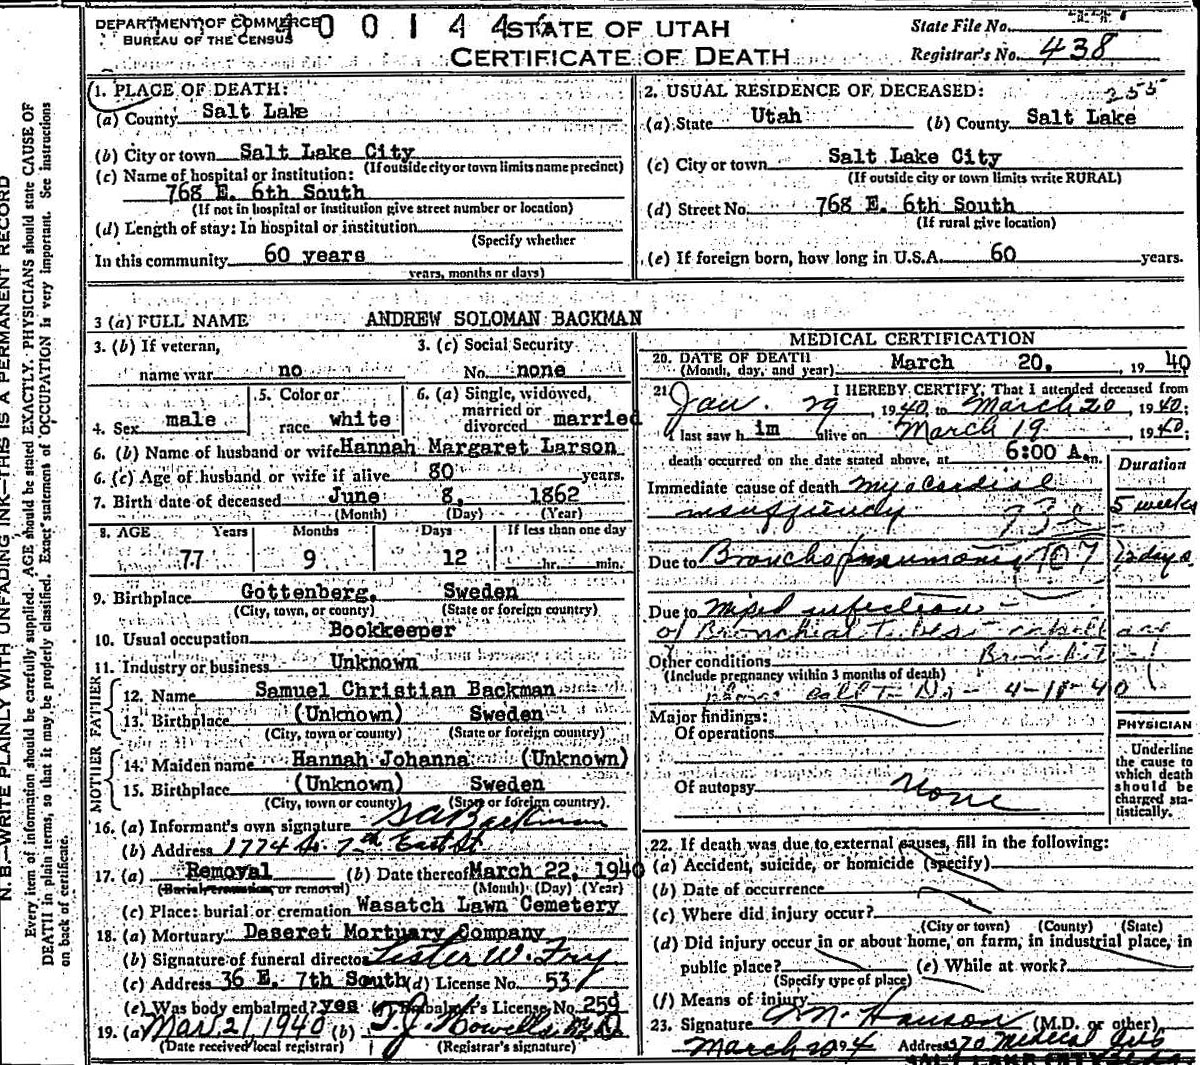 DEPARTMENT OF COMMERCE
BUREAU OF THE CENSUS
STATE OF UTAH
CERTIFICATE OF DEATH
State File No.
Registrar's No. 438
N. B.—WRITE PLAINLY WITH UNFADING INK—THIS IS A PERMANENT RECORD
Every item of information should be carefully supplied. AGE should be stated EXACTLY. PHYSICIANS should state CAUSE OF
DEATH in plain terms, so that it may be properly classified. Exact statement of OCCUPATION is very important. See instructions
on back of certificate.
1. PLACE OF DEATH:
(a) County Salt Lake
(b) City or town Salt Lake City
(If outside city or town limits name precinct)
(c) Name of hospital or institution:
768 E. 6th South
(If not in hospital or institution give street number or location)
(d) Length of stay: In hospital or institution
(Specify whether
In this community 60 years
years, months or days)
2. USUAL RESIDENCE OF DECEASED: 255
(a) State Utah (b) County Salt Lake
(c) City or town Salt Lake City
(If outside city or town limits write RURAL)
(d) Street No. 768 E. 6th South
(If rural give location)
(e) If foreign born, how long in U.S.A. 60 years.
3 (a) FULL NAME ANDREW SOLOMAN BACKMAN
3. (b) If veteran, 3. (c) Social Security
name war no No. none
4. Sex male 5. Color or race white 6. (a) Single, widowed, married or divorced married
6. (b) Name of husband or wife Hannah Margaret Larson
6. (c) Age of husband or wife if alive 80 years.
7. Birth date of deceased June 8, 1862
(Month) (Day) (Year)
8. AGE Years Months Days If less than one day
77 9 12 hr. min.
9. Birthplace Gottenberg, Sweden
(City, town, or county) (State or foreign country)
10. Usual occupation Bookkeeper
11. Industry or business Unknown
FATHER
12. Name Samuel Christian Backman
13. Birthplace (Unknown) Sweden
(City, town or county) (State or foreign country)
MOTHER
14. Maiden name Hannah Johanna (Unknown)
15. Birthplace (Unknown) Sweden
(City, town or county) (State or foreign country)
16. (a) Informant's own signature S A Backman
(b) Address 1774 So. 7th East St
17. (a) Removal (b) Date thereof March 22, 1940
(Burial, cremation, or removal) (Month) (Day) (Year)
(c) Place: burial or cremation Wasatch Lawn Cemetery
18. (a) Mortuary Deseret Mortuary Company
(b) Signature of funeral director Lester W. Fry
(c) Address 36 E. 7th South (d) License No. 53
(e) Was body embalmed? yes (f) Embalmer's License No. 259
19. (a) Mar 21, 1940 (b) T. J. Howells
(Date received local registrar) (Registrar's signature)
MEDICAL CERTIFICATION
20. DATE OF DEATH March 20, 1940
(Month, day, and year)
21. I HEREBY CERTIFY, That I attended deceased from
Jan. 29, 1940, to March 20, 1940;
I last saw him alive on March 19, 1940;
death occurred on the date stated above, at 6:00 A.m.
Duration
Immediate cause of death Myocardial
insufficiency 5 weeks
Due to Bronchopneumonia 107 days
Due to Mixed infection
of Bronchial Tubes
Other conditions
(Include pregnancy within 3 months of death)
4-18-40
Major findings:
Of operations
Of autopsy None
PHYSICIAN
Underline
the cause to
which death
should be
charged sta-
tistically.
22. If death was due to external causes, fill in the following:
(a) Accident, suicide, or homicide (specify)
(b) Date of occurrence
(c) Where did injury occur?
(City or town) (County) (State)
(d) Did injury occur in or about home, on farm, in industrial place, in
public place? (e) While at work?
(Specify type of place)
(f) Means of injury
23. Signature M. Hanson (M.D. or other)
March 20 Address 370 Medical Arts
SALT LAKE CITY